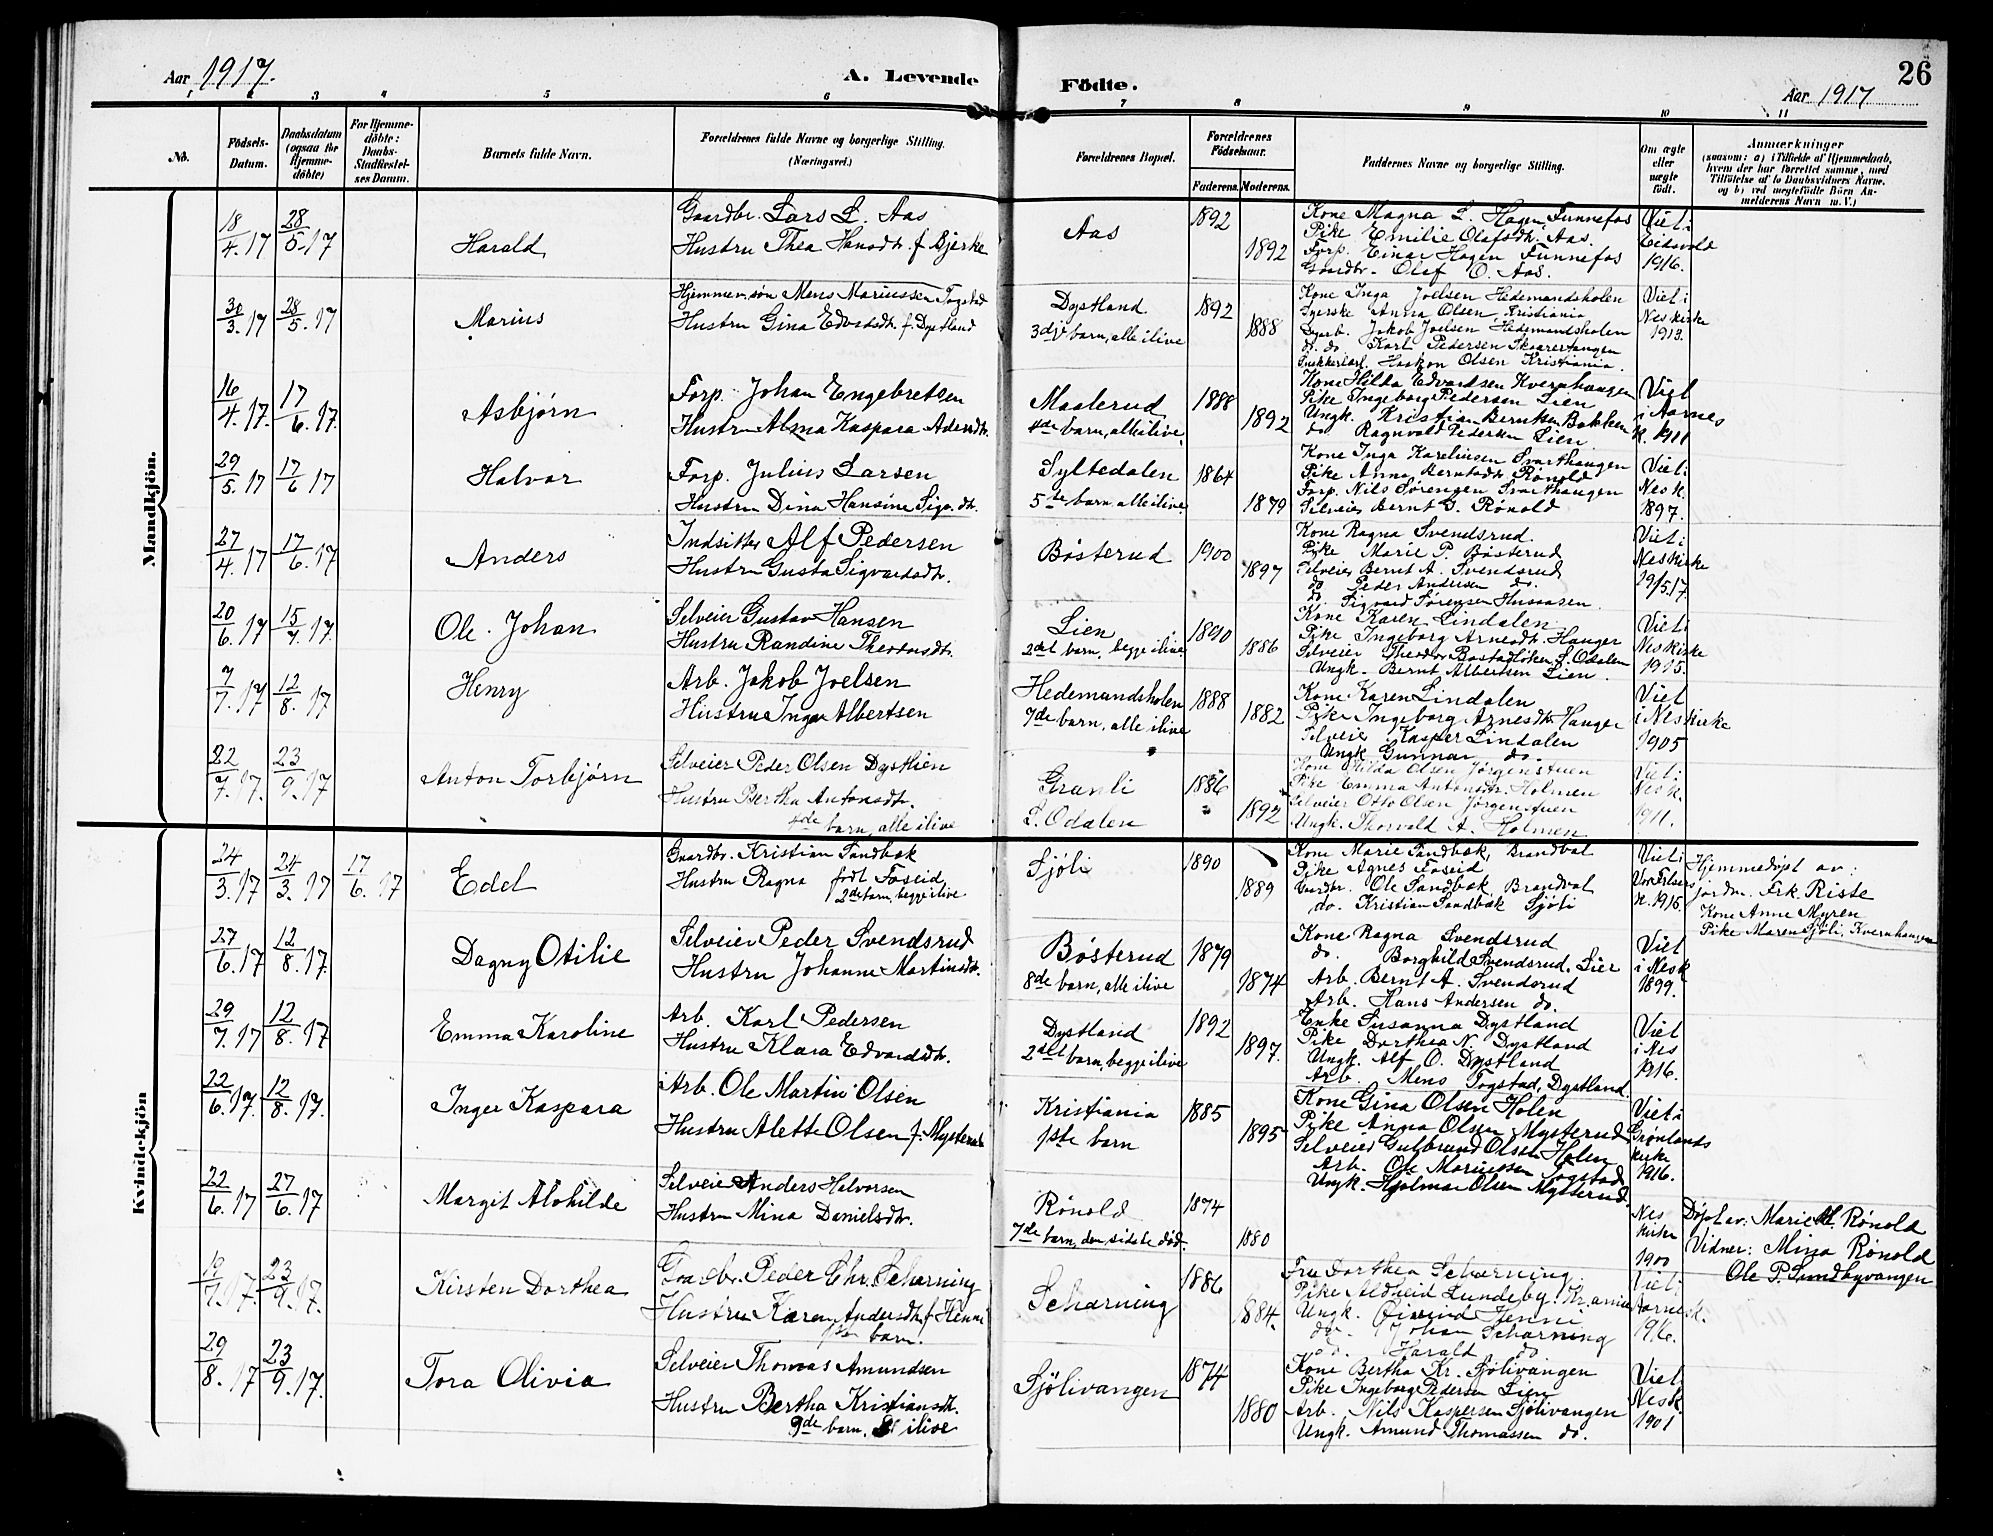 Aar 1917.
A. Levende
Födte.
26
Aar 1917
1 2 3 4 5 6 7 8 9 10 11
No.
Födsels-
Datum.
Daabsdatum
(ogsaa for
Hjemme-
döbte)
For Hjemme-
döbte:
Daabs-
Stadfæstel-
ses Datum.
Barnets fulde Navn.
Forældrenes fulde Navne og borgerlige Stilling.
(Næringsvei.)
Forældrenes Bopæl.
Forældrenes
Födselsaar.
Faderens. Moderens.
Faddernes Navne og borgerlige Stilling.
Om ægte
eller
uægte
født.
Anmærkninger
(saasom: a) i Tilfælde af Hjemmedaab,
hvem der har forrettet samme, med
Tilföielse af to Daabsvidners Navne,
og b) ved uægtefödte Börn An-
melderens Navn m. V.)
Mandkjön.
18/4. 17 28/5. 17 Harald
Gaardbr. Lars L. Aas
Hustru Thea Hansdtr. f. Bjerke
Aas
1892
1892
Kone Magna L. Hagen Funnefos
Pike Emilie Olafsdtr. Aas.
Forp. Einar Hagen Funnefos
Gaardbr. Olaf O. Aas.
Viet i
Eidsvold
1916.
30/3. 17 28/5. 17 Marius
Hjemmev. søn Mens Mariussen Togstad
Hustru Gina Edvardsdtr. f. Dystland
Dystland
3dje barn, alle ilive
1892
1888
Kone Inga Joelsen Hedemandsholen
Syerske Anna Olsen, Kristiania
Jakob Joelsen Hedemandsholen
do. do Karl Pedersen Skaarertangen
Haakon Olsen Kristiania.
Viet i
Nes kirke
1913.
16/4. 17. 17/6. 17. Asbjørn
Forp. Johan Engebretsen
Hustru Alma Kaspara
Maalerud
4de barn, alle ilive.
1888
1892
Kone Hilda Edvardsen Kvernhaugen
Pike Ingeborg Pedersen Lien
Ungk. Kristian Berntsen Bakken
do Ragnvald Pedersen Lien
Viet
i Aarnes
K. 1911
29/5. 17 17/6 17 Halvor
Forp. Julius Larsen
Hustru Dina Hansine Sigv. dtr.
Syltedalen
5te barn, alle ilive.
1864
1879
Kone Inga Karelinsen Svarthaugen
Pike Anna Berntsdtr. Rønold
Forp. Nils Sørengen Svarthaugen
Selveier Bernt G. Rønold
Viet i
Nes K.
1897.
27/4. 17 17/6. 17 Anders
Indsitter Alf Pedersen
Hustru Gusta Sigvardsdtr.
Bøsterud
1900
1897
Kone Ragna Svendsrud.
Pike Marie P. Bøsterud
Selveier Bernt A. Svendsrud
do Peder Andersen do.
do Sigvard Sørensen Husaasen.
Viet i
Nes kirke
29/5.17.
20/6. 17 15/7. 17. Ole Johan
Selveier Gustav Hansen
Hustru Randine Theodorsdtr.
Lien
2det barn, begge ilive.
1890
1886
Kone Karen Lindalen
Pike Ingeborg Arnesdtr. Hauger
Selveier Theodor S. Odalen
Ungk. Bernt Albertsen Lien.
Viet i
Nes kirke
1915.
7/7. 17 12/8. 17 Henry
Arb. Jakob Joelsen
Hustru Inga Albertsen
Hedemandsholen
7de barn, alle ilive
1888
1882
Kone Karen Lindalen
Pike Ingeborg Arnesdtr. Hauger
Selveier Kasper Lindalen
Ungk. Gunnar do.
Viet
i Nes kirke
1905
22/7. 17. 23/9. 17 Anton Torbjørn
Selveier Peder Olsen Dysthien
Hustru Bertha Antonsdtr.
4de barn, alle ilive
Granli
S. Odalen
1886
1892
Kone Hilda Olsen Jørgenstuen
Pike Emma Antonsdtr. Holmen
Selveier Otto Olsen Jørgenstuen
Ungk. Thorvald A. Holmen
Viet i
Nes k.
1911.
Kvindekjön
24/3. 17 24/3. 17 17/6. 17 Edel
Gaardbr. Kristian Sandbæk
Hustru Ragna født Foseid
2det barn, begge ilive
Sjøli
1890
1889
Kone Marie Sandbæk, Brandval
Pike Agnes Foseid
Gardbr. Ole Sandbæk Brandval
do. Kristian Sandbæk Sjøli
Viet i
Vor Frlsers
k. 1915.
Hjemmedøpt av:
jordm. Frk. Riste
Kone Anne Myren
Pike Maren Sjöli, Kvernhaugen
27/6. 17 12/8. 17. Dagny Otilie
Selveier Peder Svendsrud
Hustru Johanne Martinsdtr.
Bøsterud
8de barn, alle ilive
1879
1874
Kone Ragna Svendsrud
do. Borghild Svendsrud, Lier
Arb. Bernt A. Svendsrud
Arb. Hans Andersen do.
Viet
i Nes k
1899.
29/7. 17 12/8. 17 Emma Karoline
Arb. Karl Pedersen
Hustru Klara Edvardsdtr.
Dystland
2det barn, begge ilive
1892
1897.
Enke Susanna Dystland
Pike Dorthea N. Dystland
Ungk. Alf O. Dystland
Arb. Mens Togstad, Dystland.
Viet
i Nes
1916.
22/6. 17. 12/8. 17. Inger Kaspara
Arb. Ole Martin Olsen
Hustru Alette Olsen f. Mysterud
Kristiania
1ste barn
1885
1895
Kone Gina Olsen Holen
Pike Anna Olsen Mysterud
Selveier Gulbrand Olsen Holen
Arb. Ole Mariussen Togstad
Ungk. Hjalmar Olsen Mysterud.
Viet i
Grønlands
kirke
1916.
22/6. 17 27/6. 17 Margit Alvhilde
Selveier Anders Halvorsen
Hustru Mina Danielsdtr.
Rønold
7de barn, den sidste død.
1874
1880
Nes
kirke
1900
Døpt av: Marie M. Rønold
Vidner: Mina Rønold
Ole P. Sundbyvangen
19/7. 17. 23/9. 17. Kirsten Dorthea
Gaardbr. Peder Chr. Scharning
Hustru Karen Andersdtr. f. Henni
1ste barn.
Scharning
1886
1884.
Fru Dorthea Scharning
Pike Aldheid Lundeby. Kr.ania
Ungk. Øivind Henni
do. Johan Scharning
do. Harald do
Viet i
Aarnes k.
1916.
29/8. 17 23/9. 17. Tora Olivia
Selveier Thomas Amundsen
Hustru Bertha Kristiansdtr.
9de barn, 8 ilive
Sjölivangen
1874
1880
Kone Bertha Kr. Sjölivangen
Pike Ingeborg Pedersen Lien
Arb. Nils Kaspersen Sjölivangen
Ungk. Amund Thomassen do.
Viet i
Nes k
1901